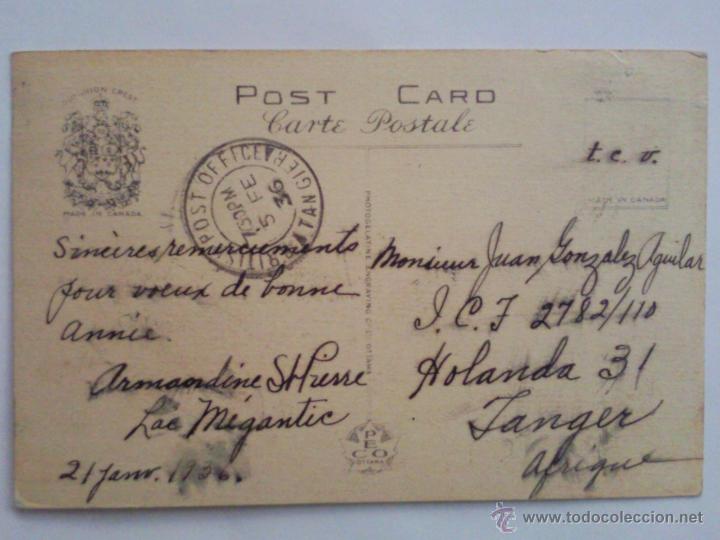 DOMINION CREST
MADE IN CANADA
POST CARD
Carte Postale
BRITISH POST OFFICE TANGIER
7:30PM
5 FE
36
t.c.v.
MADE IN CANADA
Sincères remerciements
pour voeux de bonne
année.
Armandine St Pierre
Lac Mégantic
21 janv. 1936.
PHOTOGELATINE ENGRAVING CO. LTD. OTTAWA
Monsieur Juan Gonzalez Aguilar
I.C.F 2782/110
Holanda 31
Tanger
Afrique
PECO
OTTAWA
www.todocoleccion.net